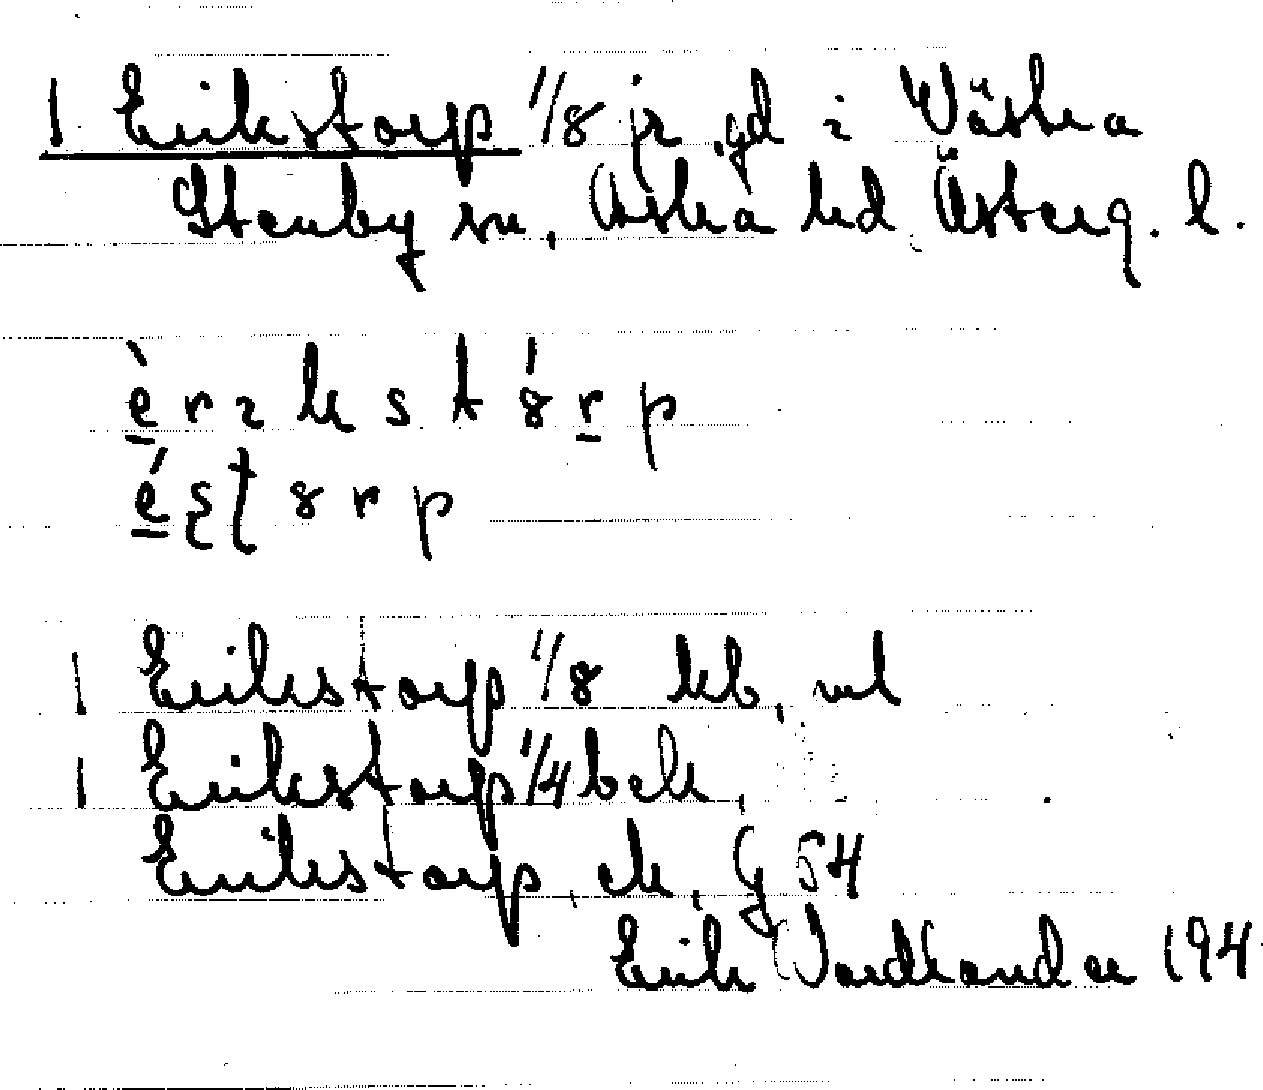 1 Erikstorp 1/8 jr, gd i Västra
Stenby sn, Aska hd Österg. l.
è r ı k s t 8́ r p
é ş ƫ 8 r p
1 Erikstorp 1/8 kb, ml
1 Erikstorp 1/4 bek,
Erikstorp, ek, G 54
Erik 194